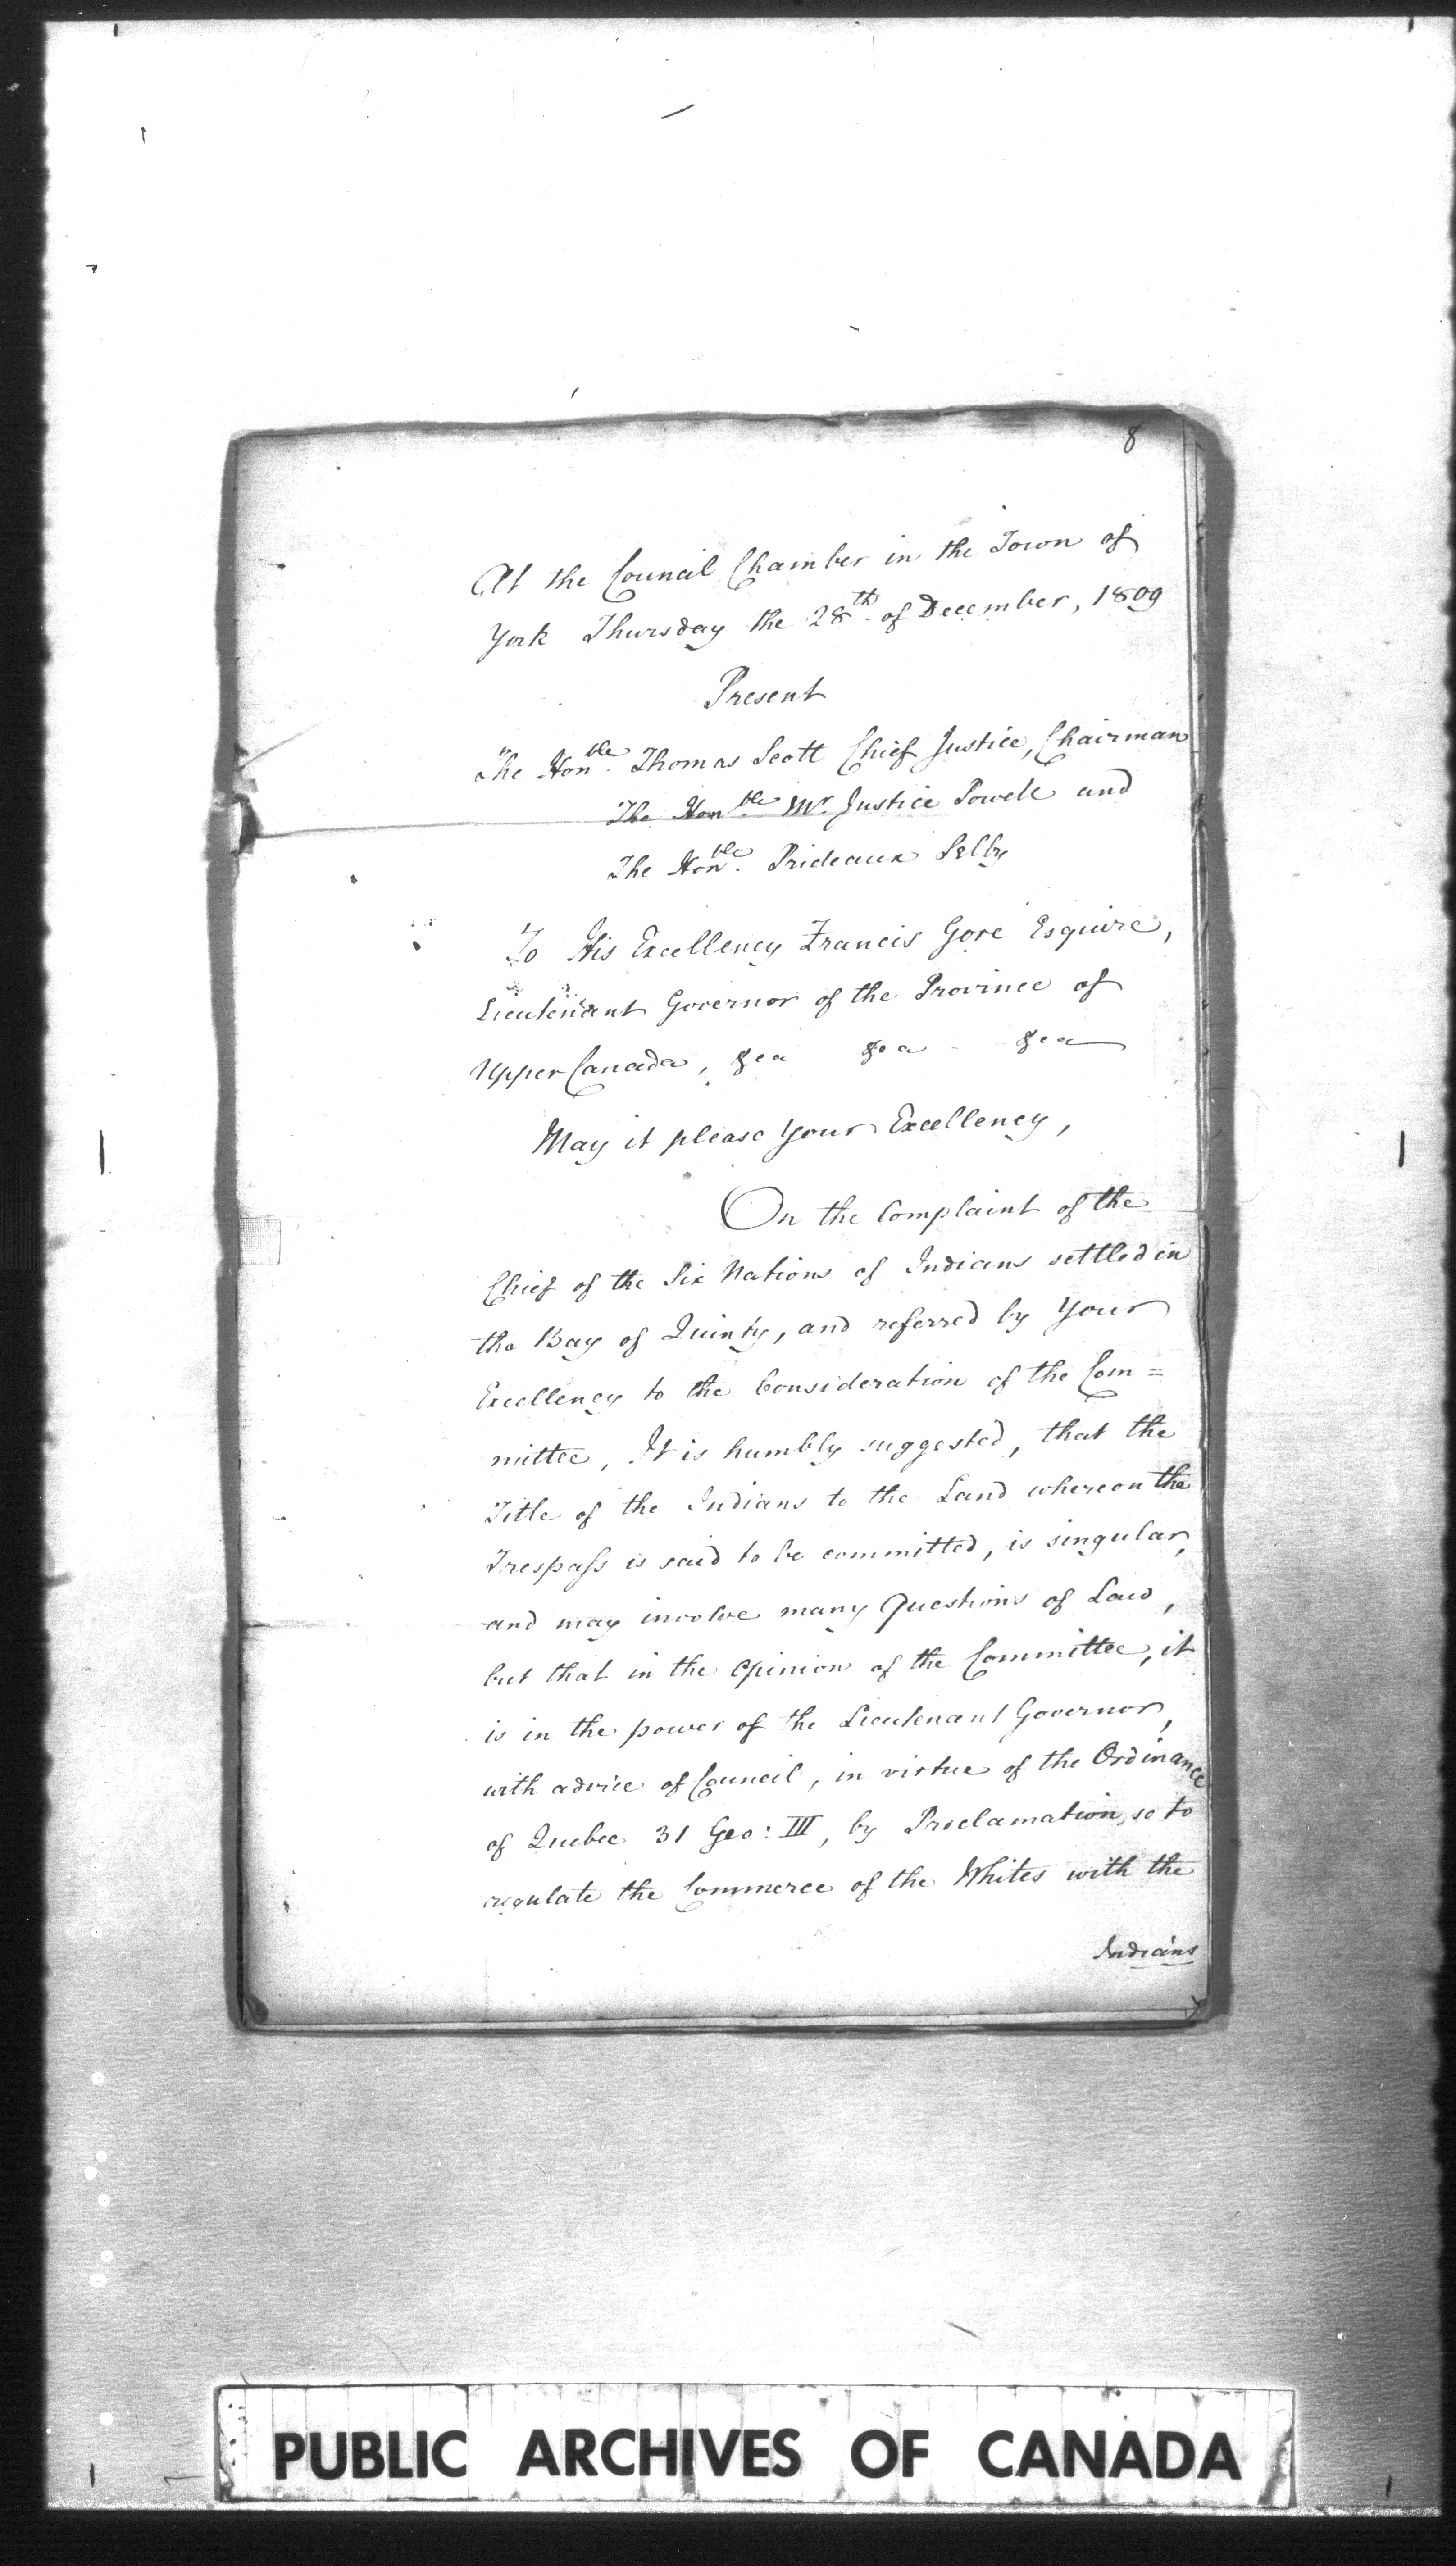 8
At the Council Chamber in the Town of
York Thursday the 28th of December, 1809
Present
The Honble Thomas Scott Chief Justice, Chairman
The Honble Mr Justice Powell and
The Honble Prideaux Selby
To His Excellency Francis Gore Esquire,
Lieutenant Governor of the Province of
Upper Canada, &ca &ca &ca
May it please Your Excellency,
On the Complaint of the
Chief of the Six Nations of Indians settled in
the Bay of Quinty, and referred by Your
Excellency to the Consideration of the Com=
mittee, It is humbly suggested, that the
Title of the Indians to the Land whereon the
Trespass is said to be committed, is singular,
and may involve many Questions of Law,
but that in the Opinion of the Committee, it
is in the power of the Lieutenant Governor,
with advice of Council, in virtue of the Ordinance
of Quebec 31 Geo: III, by Proclamation, so to
regulate the Commerce of the Whites with the
Indians
PUBLIC ARCHIVES OF CANADA